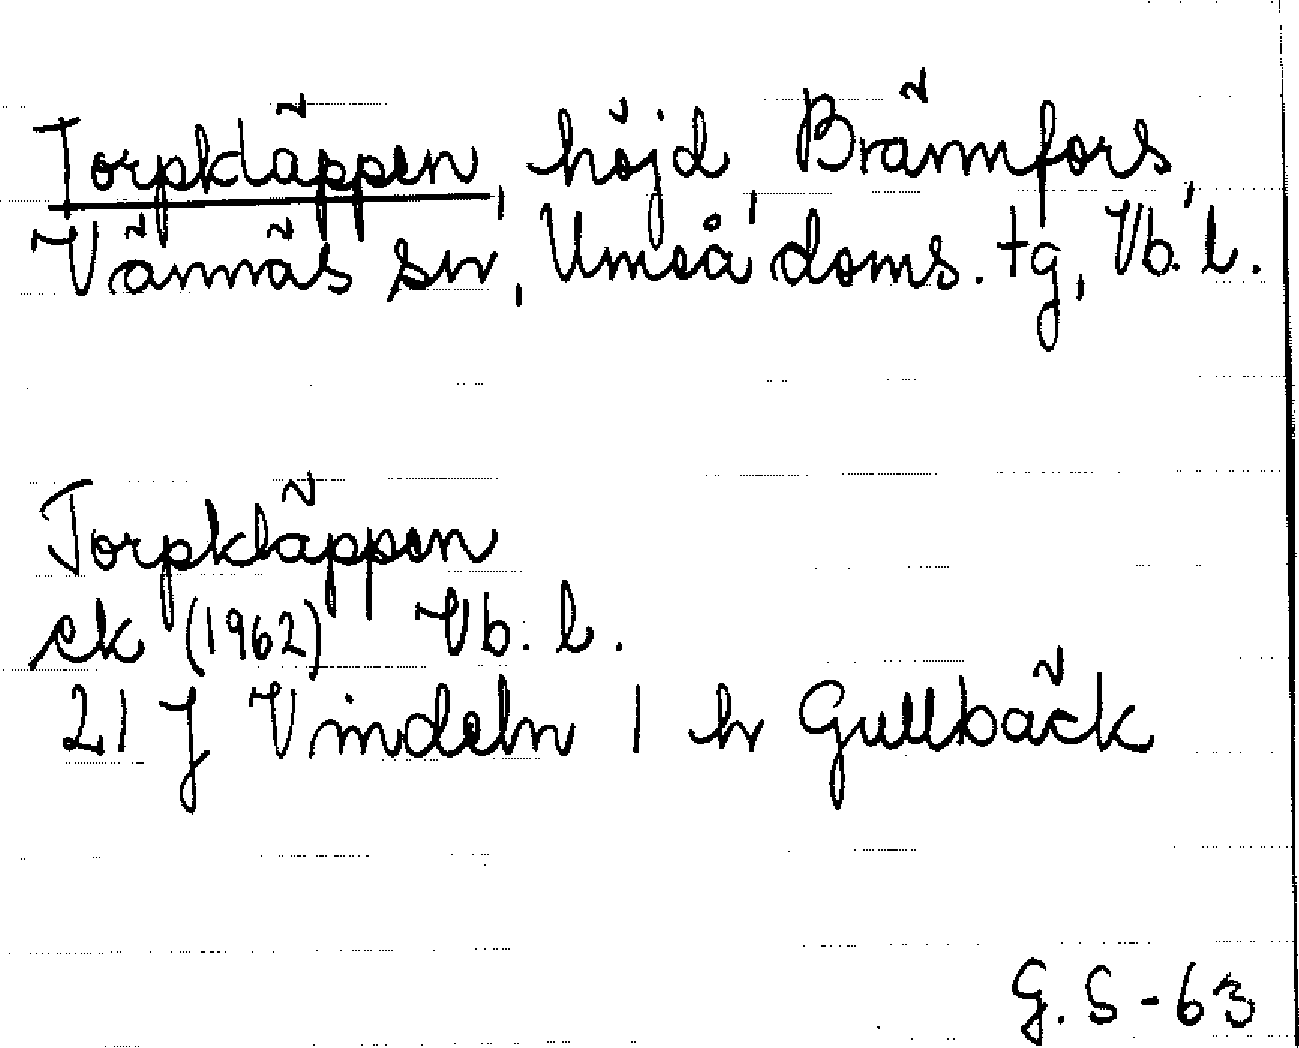 Torpkläppen, höjd, Brännfors,
Vännäs sn, Umeå doms. tg, Vb. l.
Torpkläppen
ek (1962) Vb. l.
21 J Vindeln 1 h Gullbäck
G. S - 63